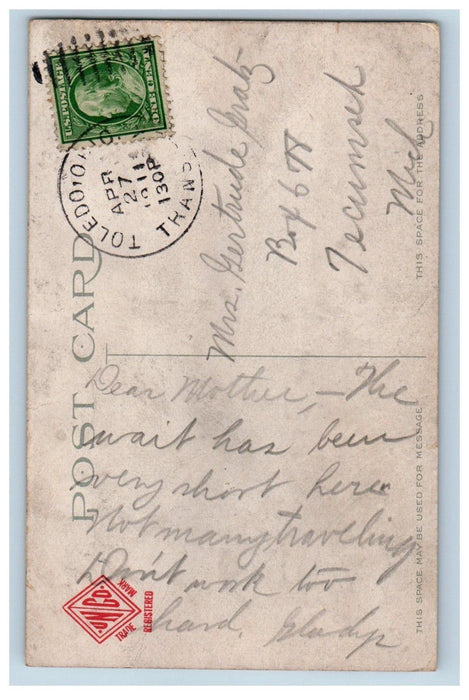 POST CARD
U.S. POSTAGE
TOLEDO, OHIO
APR
27
130P
1911
TRANSF
Mrs. Gertrude Gratz
Box 678
Tecumseh
Mich
THIS SPACE FOR THE ADDRESS
Dear Mother, – The
wait has been
very short here
Not many traveling
Don't work too
hard. Gladys
THIS SPACE MAY BE USED FOR MESSAGE
TRADE MARK
REGISTERED